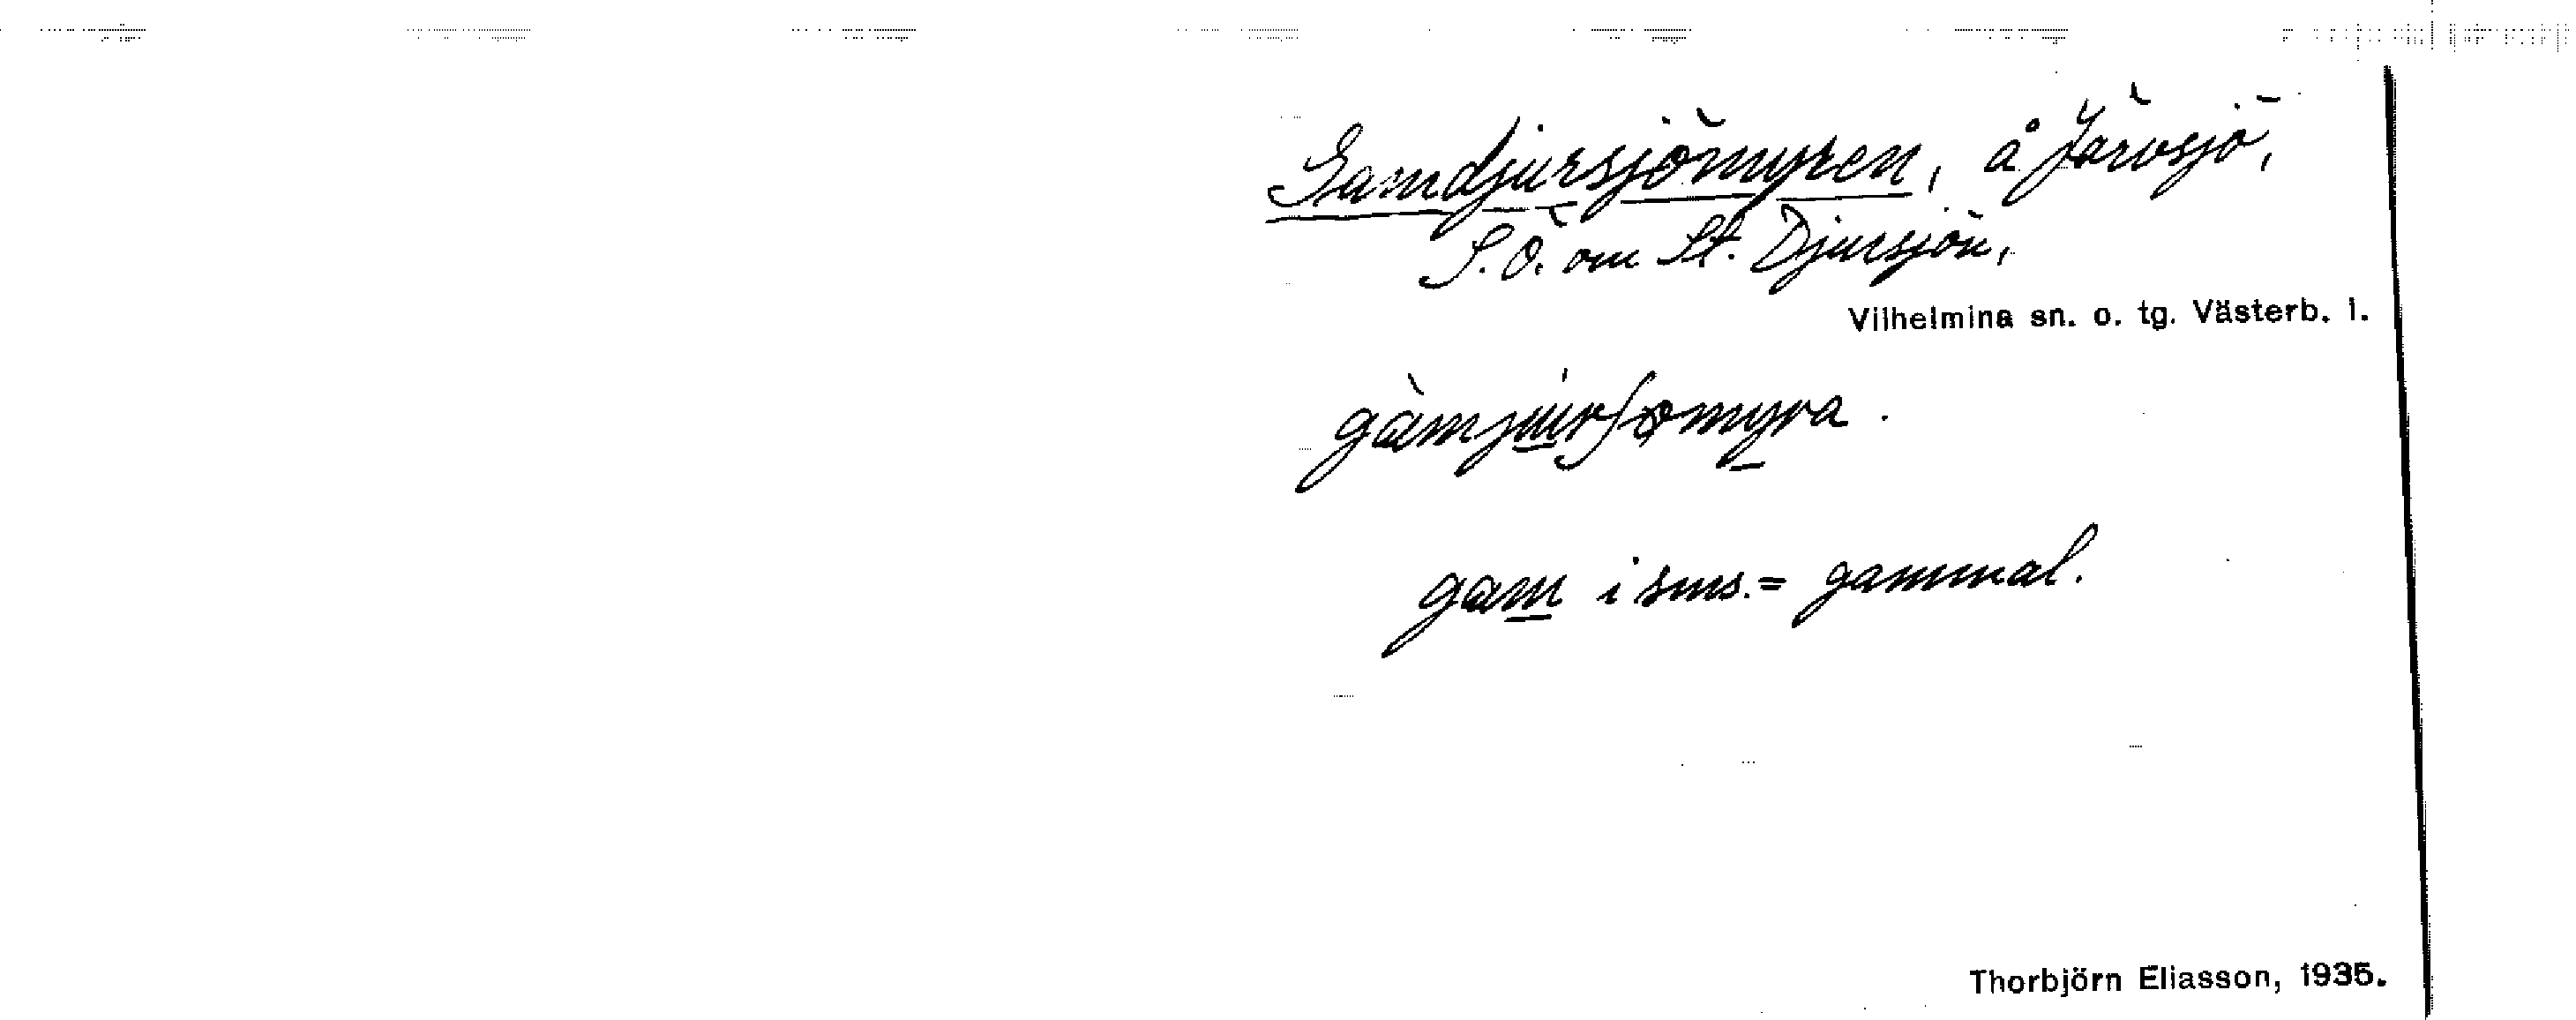 Gamdjursjömyren, å Järvsjö,
S.Ö. om St. Djursjön,
Vilhelmina sn. o. tg. Västerb. l.
gàmjuırʃømyra.
gam i sms. = gammal.
Thorbjörn Eliasson, 1935.